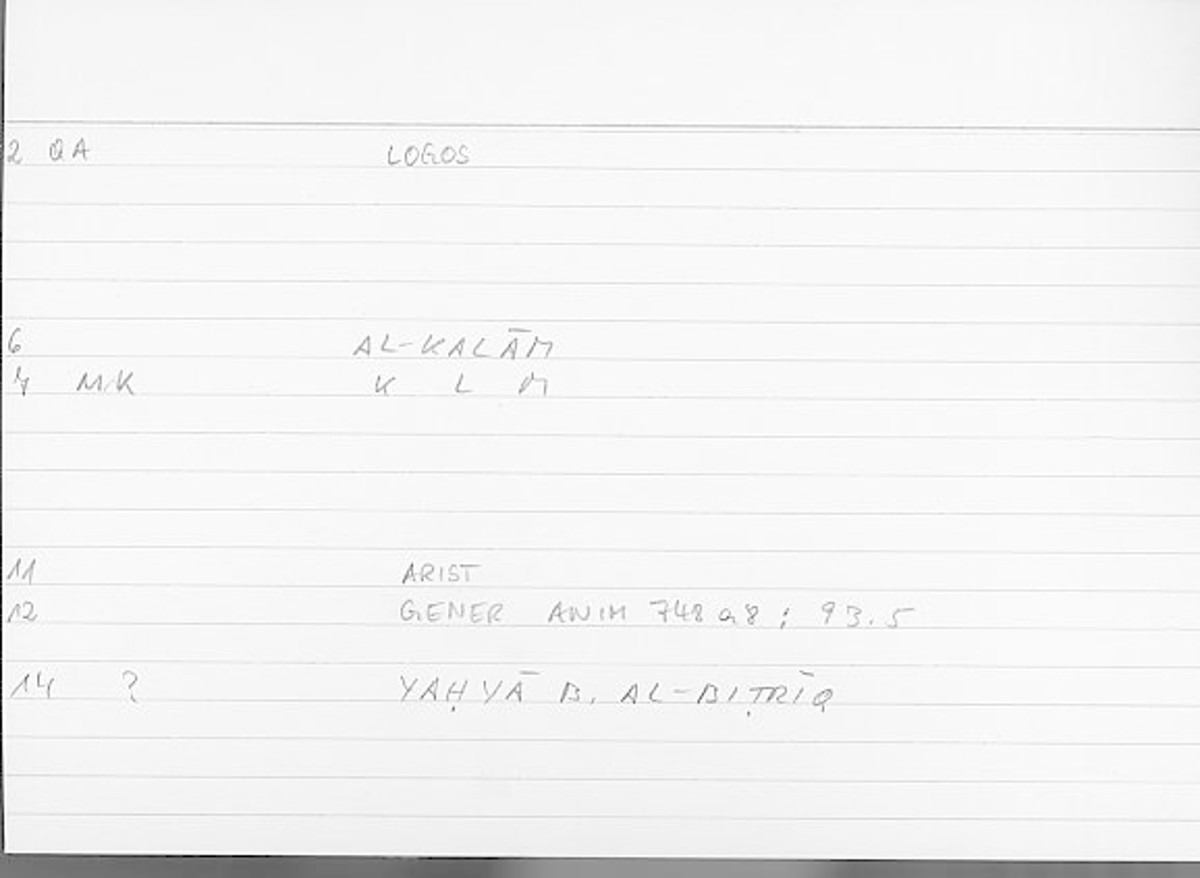 2 QA LOGOS
6 AL-KALĀM
7 M.K K L M
11 ARIST
12 GENER ANIM 748a8; 93.5
14 ? YAḤYĀ B. AL-BIṬRĪQ